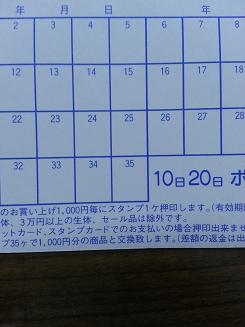 年 月 日 年
2 3 4 5 6 7 8
12 13 14 15 16 17 18
22 23 24 25 26 27 28
32 33 34 35 10日20日 ポ
のお買い上げ1,000円毎にスタンプ1ケ押印します。(有効期
体、3万円以上の生体、セール品は除外です。
ットカード、スタンプカードでのお支払いの場合押印出来ませ
プ35ヶで1,000円分の商品と交換致します。(差額の返金は出